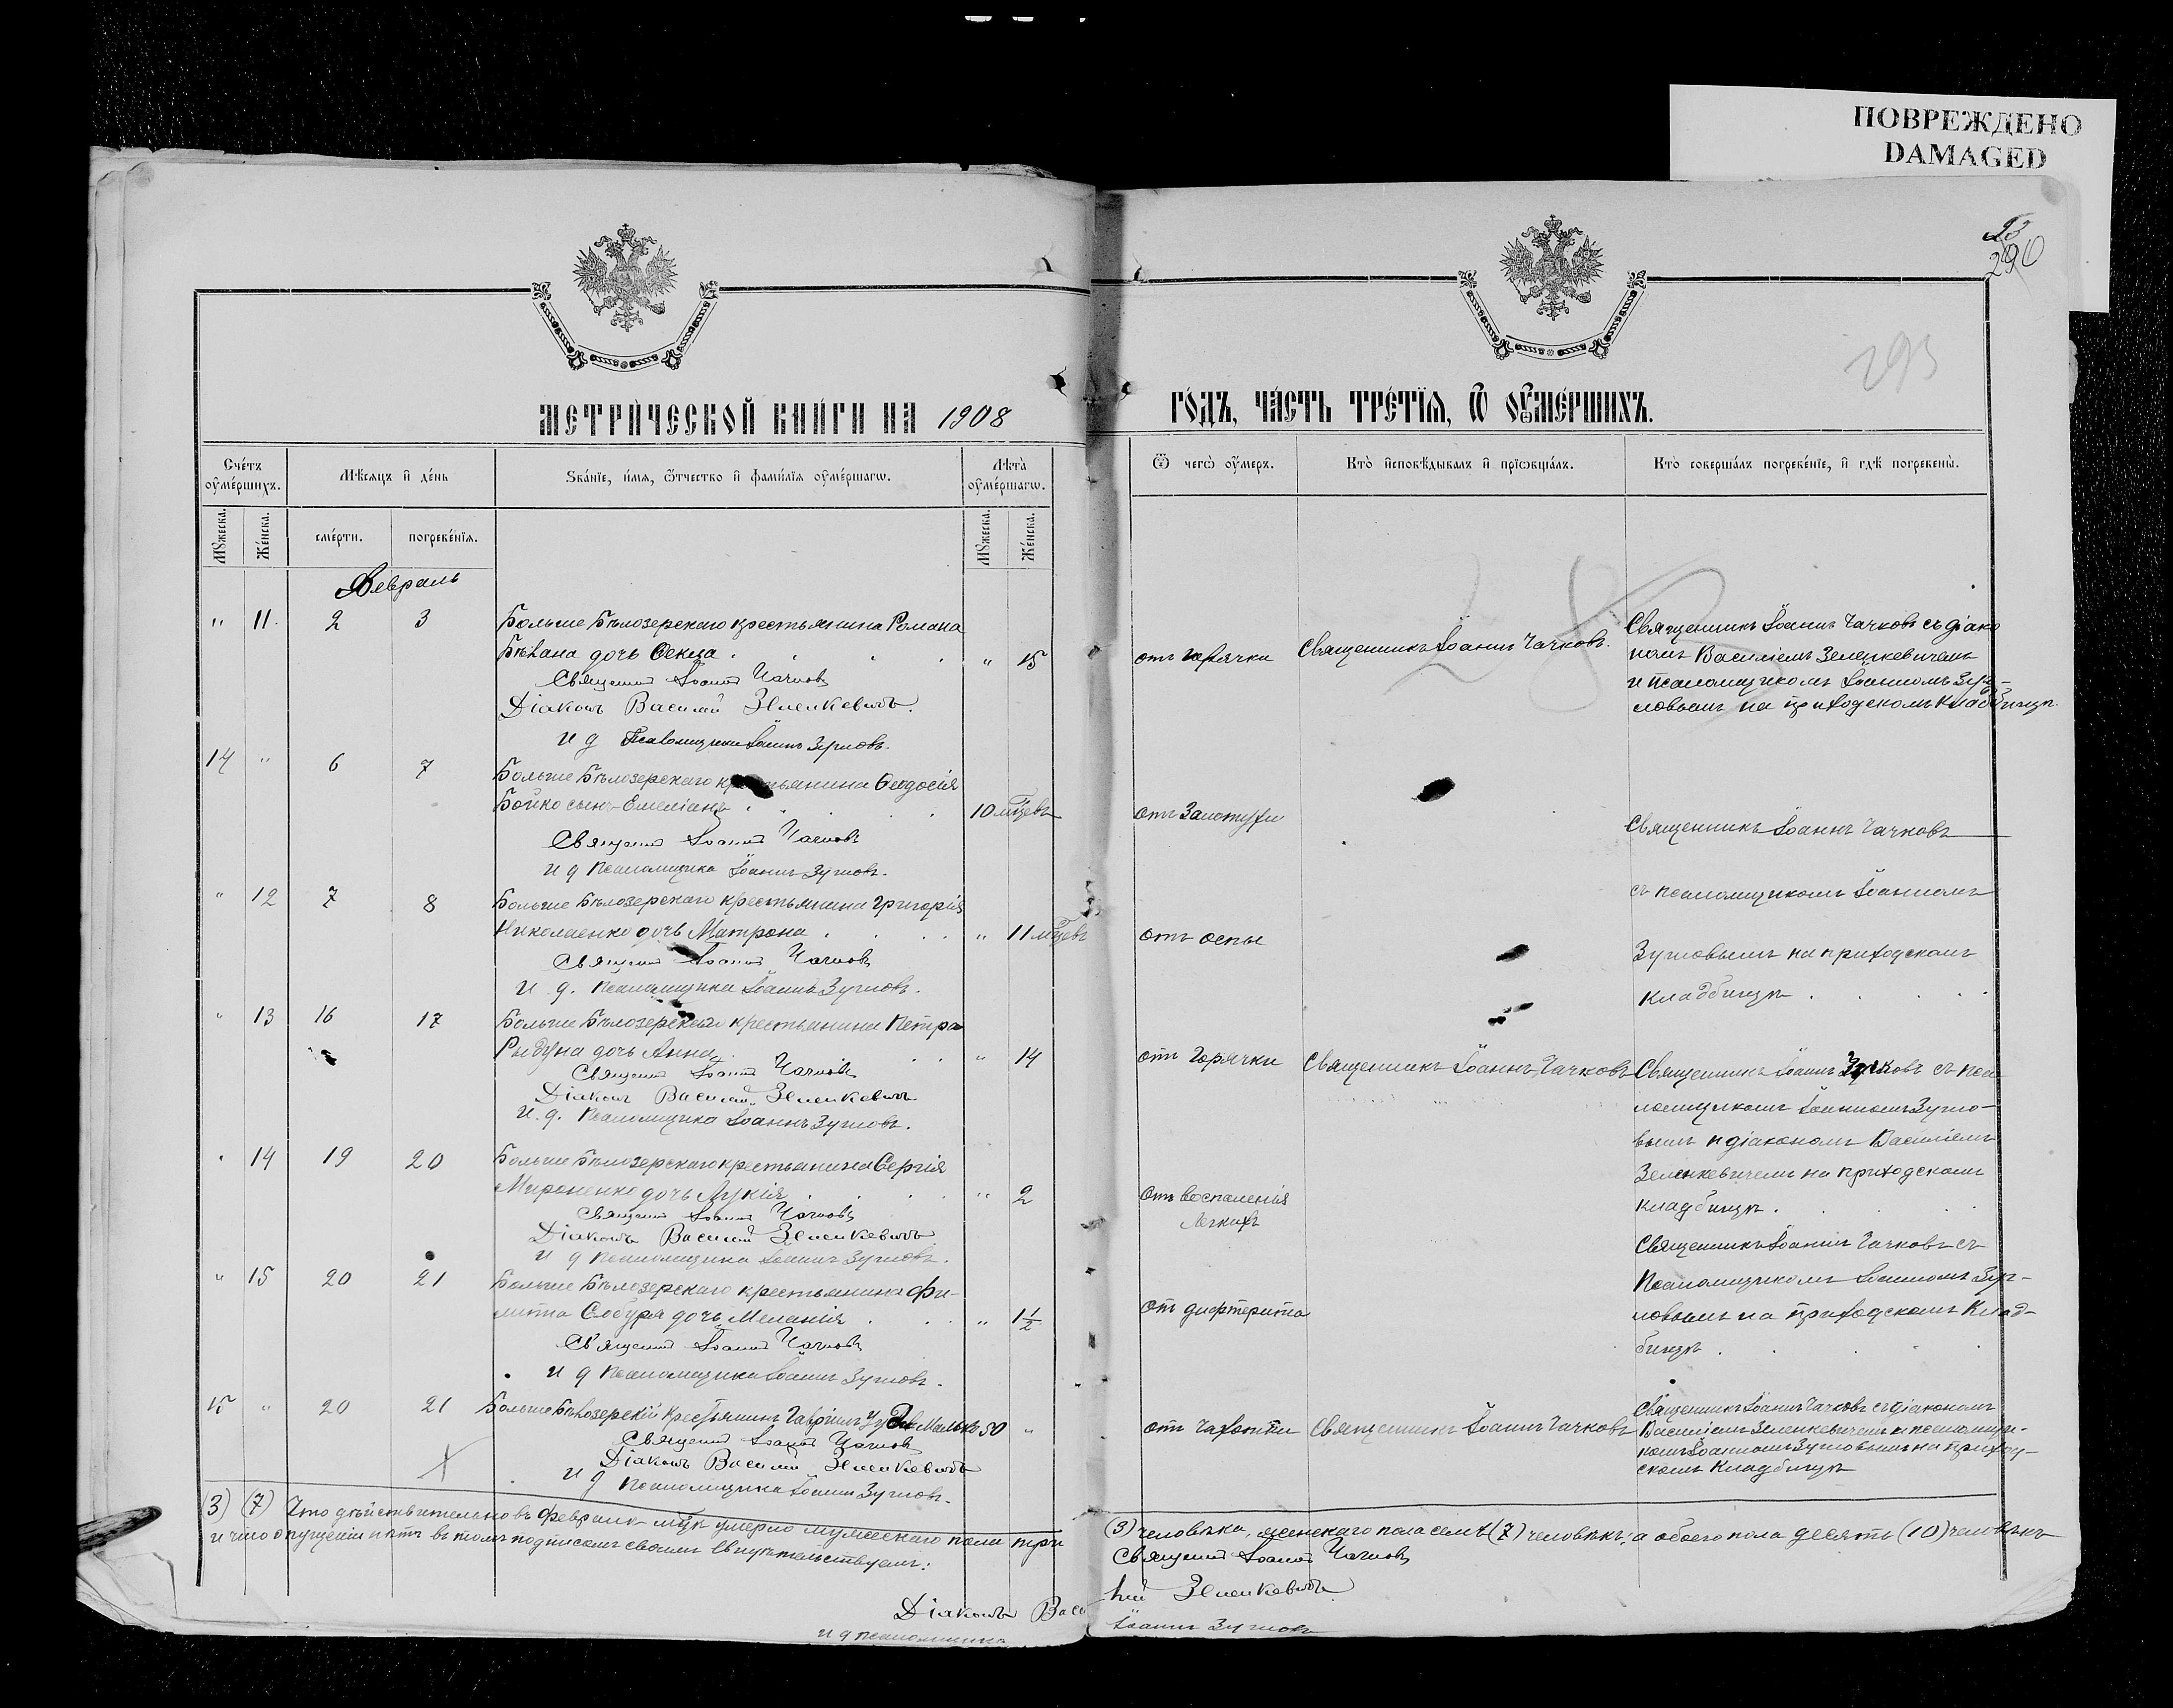 ПОВРЕЖДЕНО
DAMAGED
290
293
МЕТРИЧЕСКОЙ КНИГИ НА 1908
ГОДЪ, ЧАСТЬ ТРЕТІЯ, Ѡ ОУМЕРШИХЪ.
Счетъ оумершихъ.
Мѣсяцъ и день
Званіе, имя, ѿчество и фамилія оумершагѡ.
Лѣта оумершагѡ.
Ѿ чегѡ оумеръ.
Кто исповѣдывалъ и пріѡбщалъ.
Кто совершалъ погребеніе, и гдѣ погребены.
Мужеска.
Женска.
смерти.
погребенія.
Мужеска.
Женска.
Февраль
" 11. 2 3 Больше Бѣлозерскаго крестьянина Романа
дочь . . . . " 15 отъ горячки Священникъ Іоаннъ Чачковъ.
Священникъ Іоаннъ Чачковъ съ діако
номъ Василіемъ Зеленкевичемъ
и псаломщикомъ Іоанномъ Зуг-
ловымъ на приходскомъ кладбищѣ.
Священникъ Іоаннъ Чачковъ
Діаконъ Василій Зеленкевичъ.
и д Псаломщика Іоаннъ Зугловъ.
14 " 6 7 Больше Бѣлозерскаго крестьянина Ѳеодосія
Бойко сынъ Емеліанъ . . . . 10 мцевъ отъ Золотухи
Священникъ Іоаннъ Чачковъ
Священникъ Іоаннъ Чачковъ
и д Псаломщика Іоаннъ Зугловъ.
" 12 7 8 Больше Бѣлозерскаго крестьянина Григорія
съ псаломщикомъ Іоанномъ
Николаенко дочь Матрона . . . . " 11 мцевъ отъ оспы
Священникъ Іоаннъ Чачковъ
Зугловымъ на приходскомъ
и д. Псаломщика Іоаннъ Зугловъ.
кладбищѣ . . . .
" 13 16 17 Больше Бѣлозерскаго крестьянина Петра
дочь Анна . . . " 14 отъ горячки Священникъ Іоаннъ Чачковъ
Священникъ Іоаннъ Чачковъ съ пса
ломщикомъ Іоанномъ Зугло-
вымъ и діакономъ Василіемъ
Зеленкевичемъ на приходскомъ
кладбищѣ . . .
Священникъ Іоаннъ Чачковъ
Діаконъ Василій Зеленкевичъ
и. д. Псаломщика Іоаннъ Зугловъ.
" 14 19 20 Больше Бѣлозерскаго крестьянина Сергія
Мироненко дочь Лукія . . . . " 2 отъ воспаленія
легкихъ
Священникъ Іоаннъ Чачковъ
Діаконъ Василій Зеленкевичъ
и д Псаломщика Іоаннъ Зугловъ.
Священникъ Іоаннъ Чачковъ съ
псаломщикомъ Іоанномъ Зуг-
ловымъ на приходскомъ клад-
бищѣ . . . .
" 15 20 21 Больше Бѣлозерскаго крестьянина Фи-
липпа дочь Меланія . . . " 1½ отъ дифтерита
Священникъ Іоаннъ Чачковъ
и д Псаломщика Іоаннъ Зугловъ.
15 " 20 21 Больше Бѣлозерскій Крестьянинъ Гавріилъ 50 " отъ чахотки Священникъ Іоаннъ Чачковъ
Священникъ Іоаннъ Чачковъ съ діакономъ
Василіемъ Зеленкевичемъ и псаломщи-
комъ Іоанномъ Зугловымъ на приход-
скомъ кладбищѣ
Священникъ Іоаннъ Чачковъ
Діаконъ Василій Зеленкевичъ
и д Псаломщика Іоаннъ Зугловъ.
(3) (7) Что дѣйствительно въ февралѣ мцѣ умерло мужескаго пола три
(3) человѣка, женскаго пола семь (7) человѣкъ; а обоего пола десять (10) человѣкъ
и что опущенія нѣтъ въ томъ подписомъ своимъ свидѣтельствуемъ:
Священникъ Іоаннъ Чачковъ
Діаконъ Василій Зеленкевичъ.
и д псаломщика Іоаннъ Зугловъ